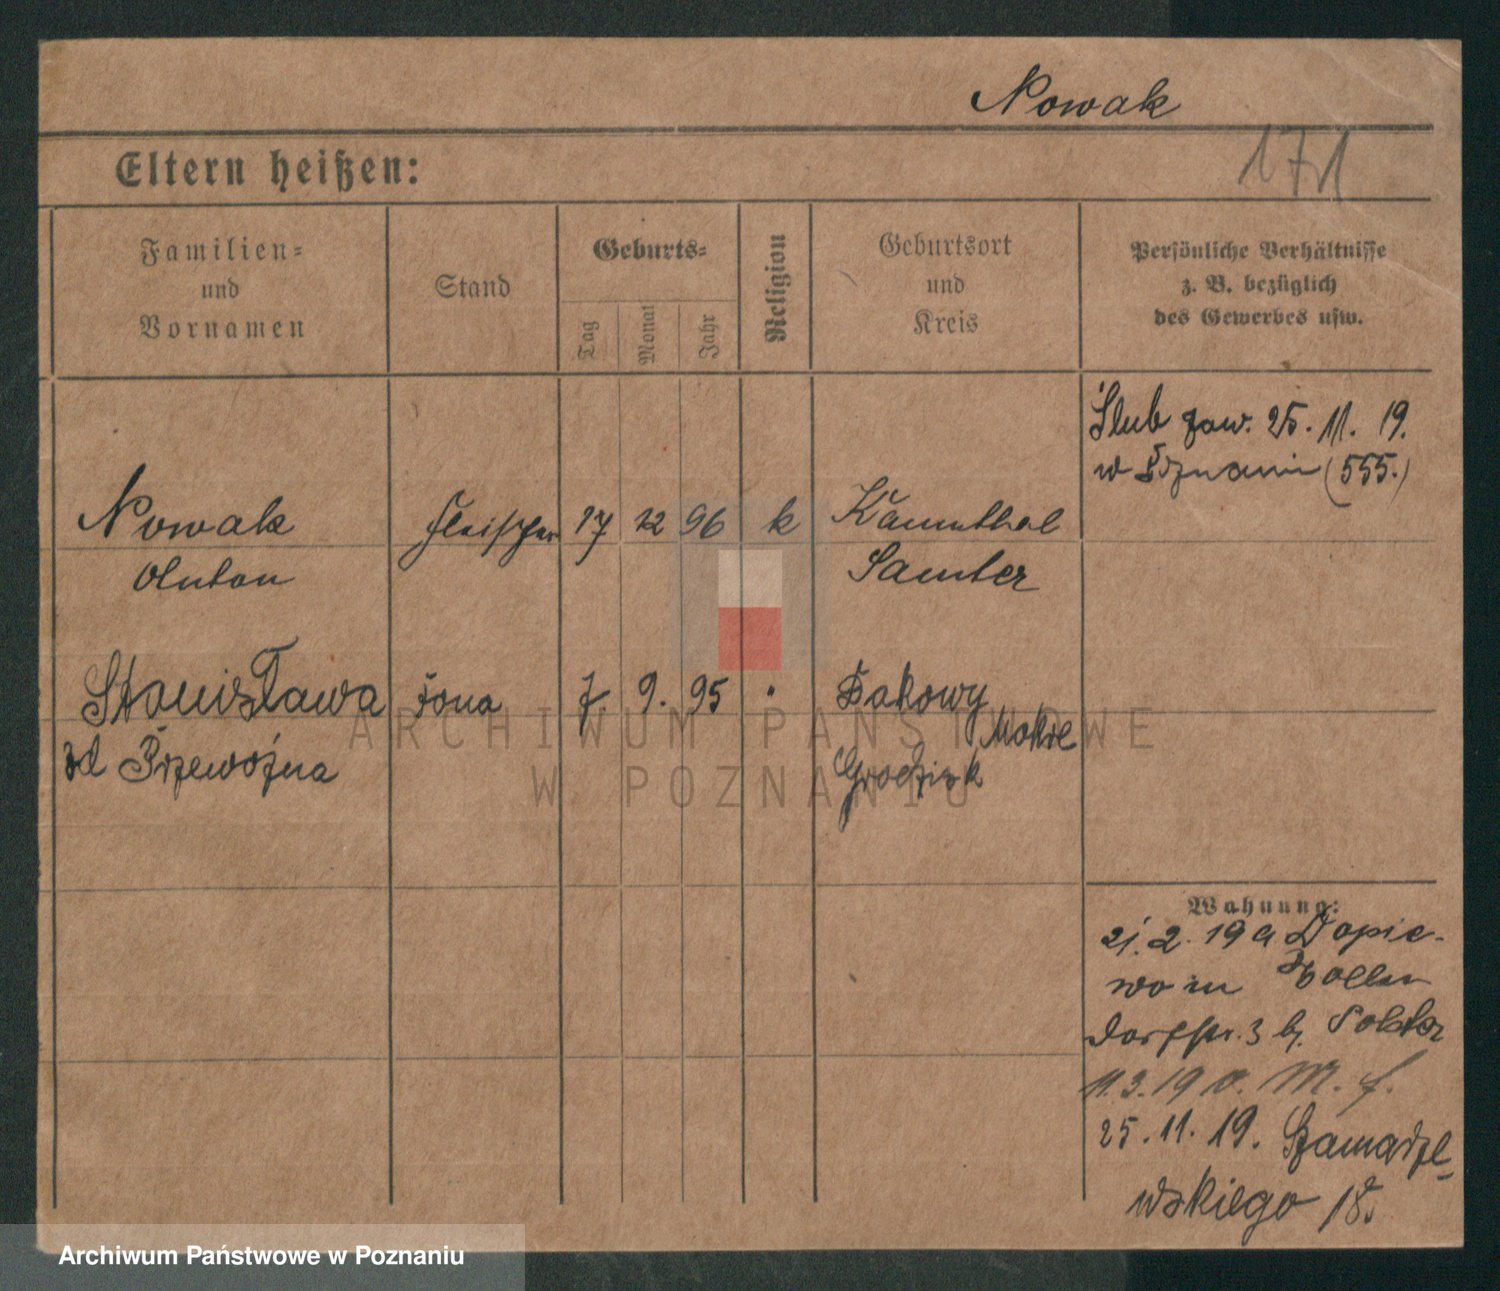 Nowak
171
Eltern heißen:
Familien=
und
Vornamen
Stand
Geburts=
Tag
Monat
Jahr
Religion
Geburtsort
und
Kreis
Persönliche Verhältnisse
z. B. bezüglich
des Gewerbes usw.
Ślub zaw. 25. 11. 19.
w Poznaniu (555.)
Nowak Fleischer 17 12 96 k
Anton Samter
Stanisława żona 7. 9. 95 "
zd Przewoźna
Bukowy
Mokre
Grodzisk
Wohnung:
21. 2. 19 a Dopie-
wo in Zollern
dorfstr. 3 b.
11. 3. 19 v. M. f.
25. 11. 19. Szamarze
wskiego 18.
ARCHIWUM PAŃSTWOWE
W POZNANIU
Archiwum Państwowe w Poznaniu